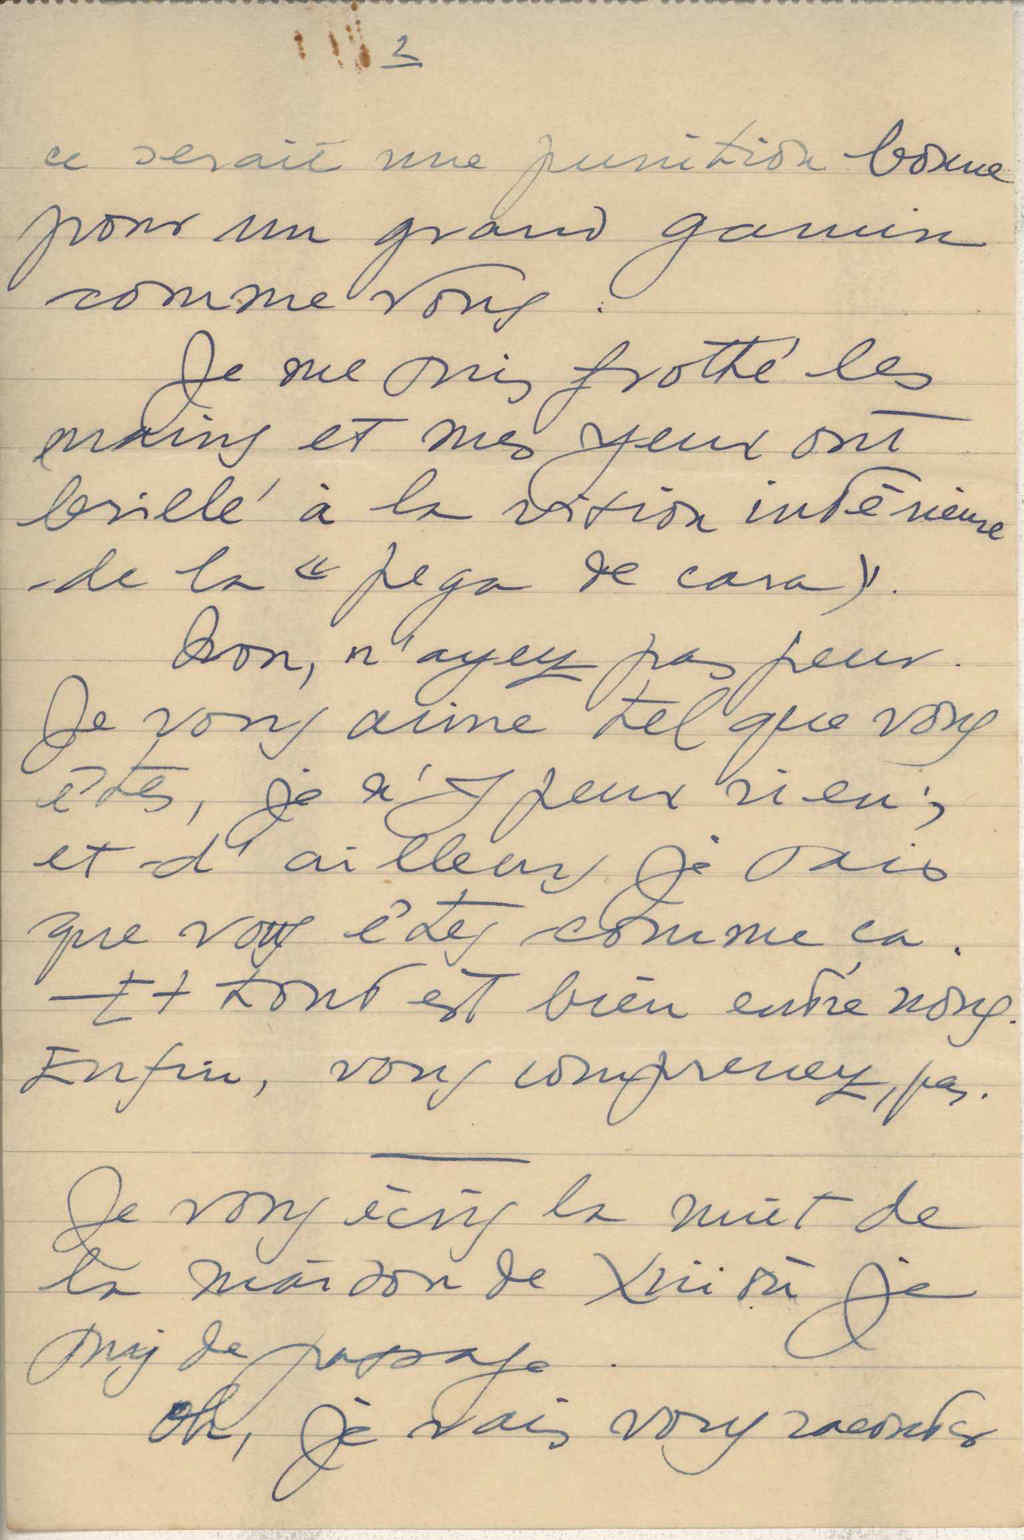 2
ce serait une punition bonne
pour un grand gamin
comme vous.
Je me suis frotté les
mains et mes yeux ont
brillé à la vision intérieure
de la « pega de cara ».
Non, n'ayez pas peur.
Je vous aime tel que vous
êtes, je n'y peux rien ;
et d'ailleurs je sais
que vous êtes comme ça.
Et tout est bien entre nous.
Enfin, vous comprenez, pas.
Je vous écris la nuit de
la maison de où je
suis de passage.
Oh, je vais vous raconter